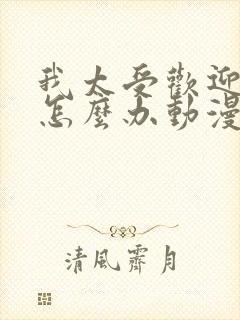 我太受歡迎
怎麼办動漫
清風霽月